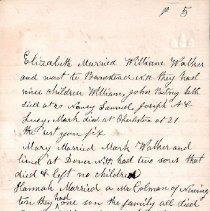 P 5
Elizabeth Married William Walker
and went to Providence R.I. They had
nine children William, John Betsey both
died at 20 Nancy Samuel Joseph A &
Lucy, Mark died at Charleston at 21
the rest
Mary Married Mark Walker and
lived at Dover N.H. had two sons that
died & left no children
Hannah Married a Mr Colman of Newing
ton they had one son the family all died